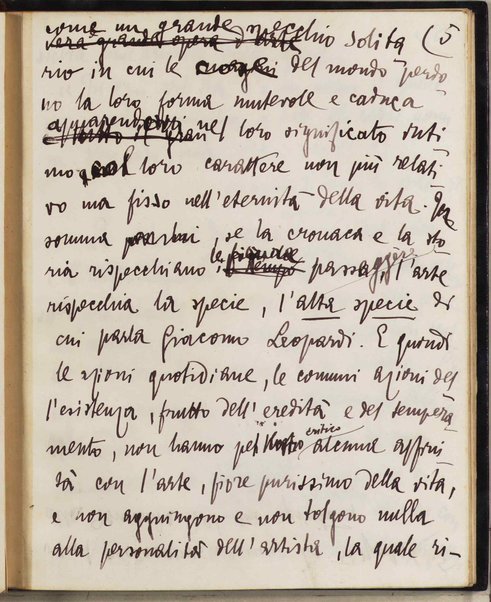 come un grande specchio solita (5
vera grande opera d'arte
rio in cui le immagini del mondo perdo
no la loro forma mutevole e caduca
apparendoci nel loro significato inti
mo, col loro carattere non più relati
vo ma fisso nell'eternità della vita. In
somma, se la cronaca e la sto
ria rispecchiano le passaggere, l'arte
rispecchia la specie, l'alta specie di
cui parla Giacomo Leopardi. E quindi
le azioni quotidiane, le comuni azioni del
l'esistenza, frutto dell'eredità e del tempera
mento, non hanno pel critico alcuna affini
tà con l'arte, fiore purissimo della vita,
e non aggiungono e non tolgono nulla
alla personalità dell'artista, la quale ri-